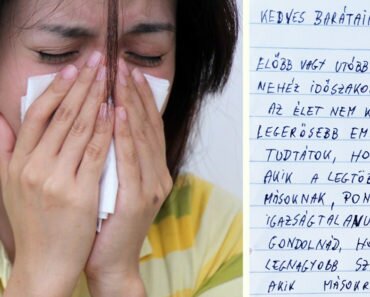 KEDVES BARÁTAIM
ELŐBB VAGY UTÓBB
NEHÉZ IDŐSZAKO
AZ ÉLET NEM K
LEGERŐSEBB EM
TUDTÁTOK, HO
AKIK A LEGTÖB
MÁSOKNAK, PON
IGAZSÁGTALANU
GONDOLNÁD, HO
LEGNAGYOBB SZ
AKIK MÁSOKR